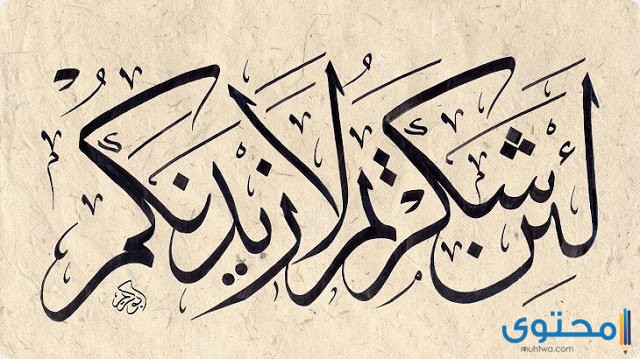 لئن شكرتم لأزيدنكم
محتوى
muhtwa.com